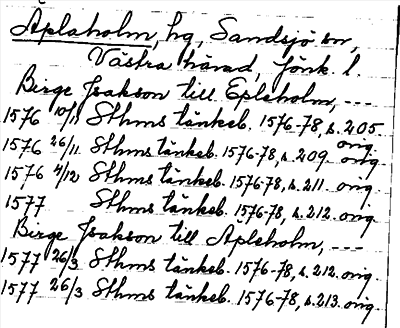 Aplaholm, hg, Sandsjö sn,
Västra härad, Jönk. l.
Birge Isakson till Epleholm, ---
1576 10/11 Sthms tänkeb. 1576-78, s. 205. orig.
1576 26/11 Sthms tänkeb. 1576-78, s. 209. orig.
1576 /12 Sthms tänkeb. 1576-78, s. 211. orig.
1577 Sthms tänkeb. 1576-78, s. 212. orig.
Birge Isakson till Apleholm, ---
1577 26/3 Sthms tänkeb. 1576-78, s. 212. orig.
1577 26/3 Sthms tänkeb. 1576-78, s. 213. orig.